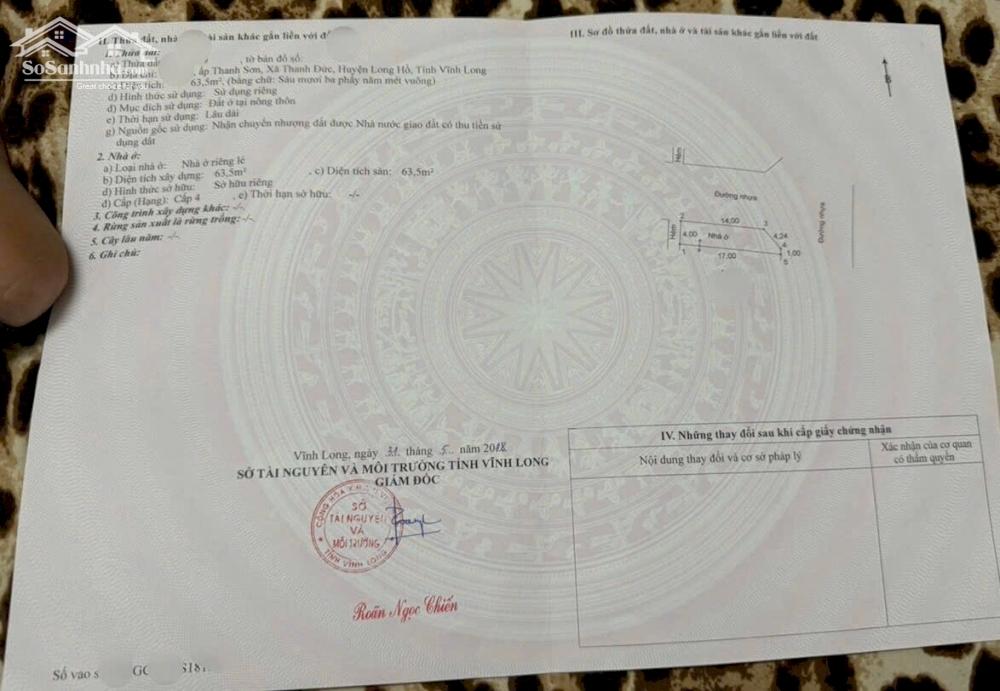 SoSanhnha.com
II. Thửa đất, nhà tài sản khác gắn liền với
1. Thửa đất:
a) Thửa đất , tờ bản đồ số:
b) Địa chỉ: , ấp Thanh Sơn, Xã Thanh Đức, Huyện Long Hồ, Tỉnh Vĩnh Long
c) Diện tích: 63,5m², (bằng chữ: Sáu mươi ba phẩy năm mét vuông)
d) Hình thức sử dụng: Sử dụng riêng
đ) Mục đích sử dụng: Đất ở tại nông thôn
e) Thời hạn sử dụng: Lâu dài
g) Nguồn gốc sử dụng: Nhận chuyển nhượng đất được Nhà nước giao đất có thu tiền sử
dụng đất
2. Nhà ở:
a) Loại nhà ở: Nhà ở riêng lẻ
b) Diện tích xây dựng: 63,5m² , c) Diện tích sàn: 63,5m²
d) Hình thức sở hữu: Sở hữu riêng
đ) Cấp (Hạng): Cấp 4 , e) Thời hạn sở hữu: -/-
3. Công trình xây dựng khác: -/-
4. Rừng sản xuất là rừng trồng: -/-
5. Cây lâu năm: -/-
6. Ghi chú:
Vĩnh Long, ngày 31 tháng 5 năm 2018
SỞ TÀI NGUYÊN VÀ MÔI TRƯỜNG TỈNH VĨNH LONG
GIÁM ĐỐC
SỞ
TÀI NGUYÊN
VÀ
MÔI TRƯỜNG
TỈNH VĨNH LONG
Roãn Ngọc Chiến
Số vào s GC 3181
III. Sơ đồ thửa đất, nhà ở và tài sản khác gắn liền với đất
B
Hẻm
Đường nhựa
Đường nhựa
2 14,00 3
Hẻm 4,00 Nhà ở 4,24
4
1 17,00 1,00
5
IV. Những thay đổi sau khi cấp giấy chứng nhận
Nội dung thay đổi và cơ sở pháp lý
Xác nhận của cơ quan
có thẩm quyền